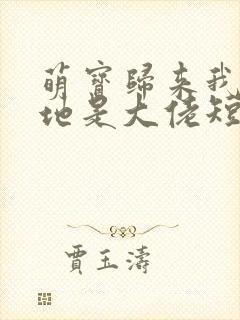 萌寶歸來我
地是大佬短
賈玉濤